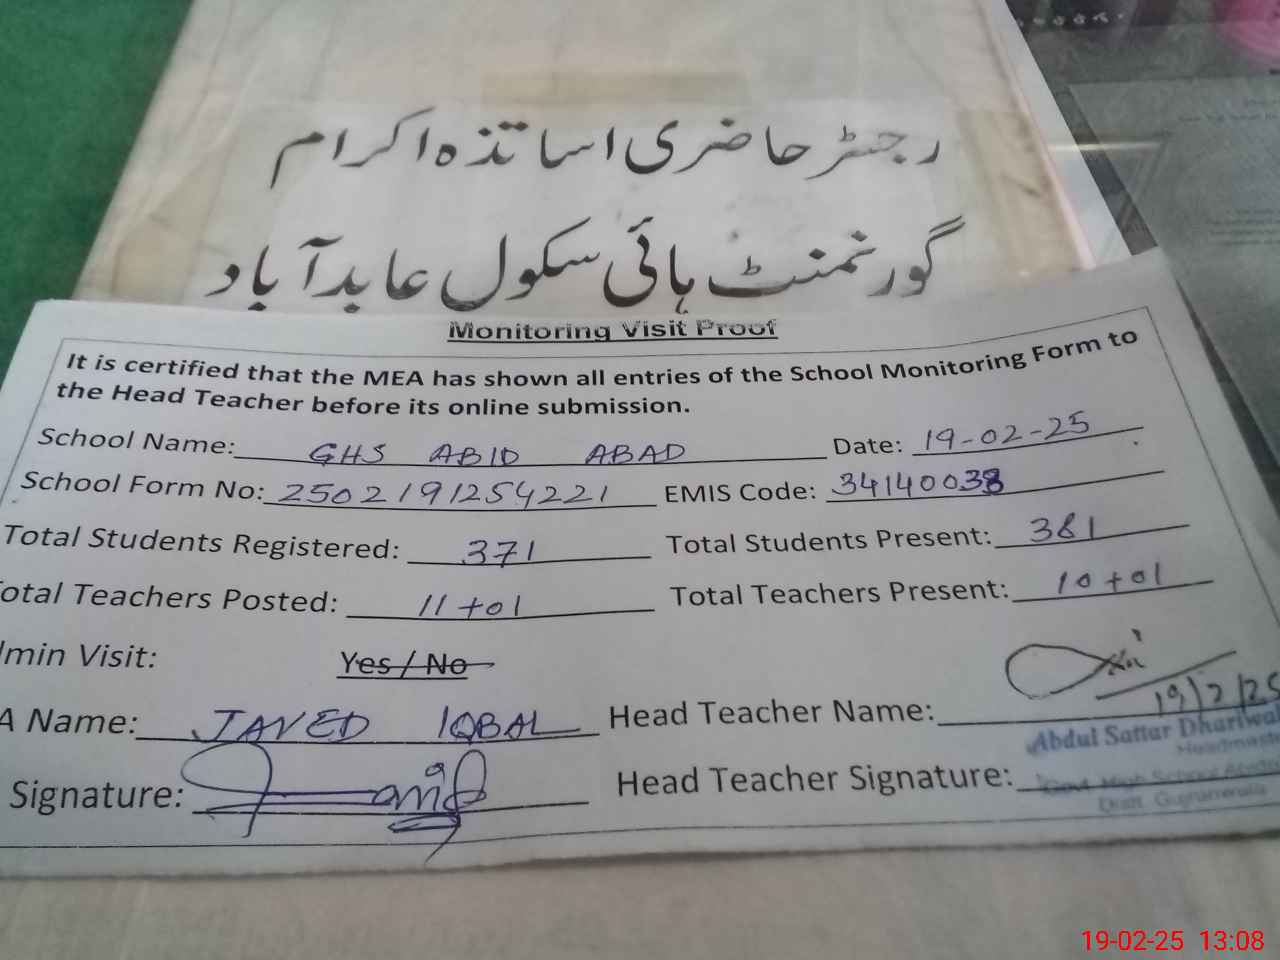 رجسٹر حاضری اساتذہ اکرام
گورنمنٹ ہائی سکول عابد آباد
Monitoring Visit Proof
It is certified that the MEA has shown all entries of the School Monitoring Form to
the Head Teacher before its online submission.
School Name: GHS ABID ABAD Date: 19-02-25
School Form No: 2502191254221 EMIS Code: 34140038
Total Students Registered: 371 Total Students Present: 381
otal Teachers Posted: 11+01 Total Teachers Present: 10+01
dmin Visit: Yes / No
19/2/25
A Name: JAVED IQBAL Head Teacher Name:
Abdul Sattar Dhariwal
Headmaste
Signature: Head Teacher Signature:
Govt. High School
Distt. Gujranwala
19-02-25 13:08